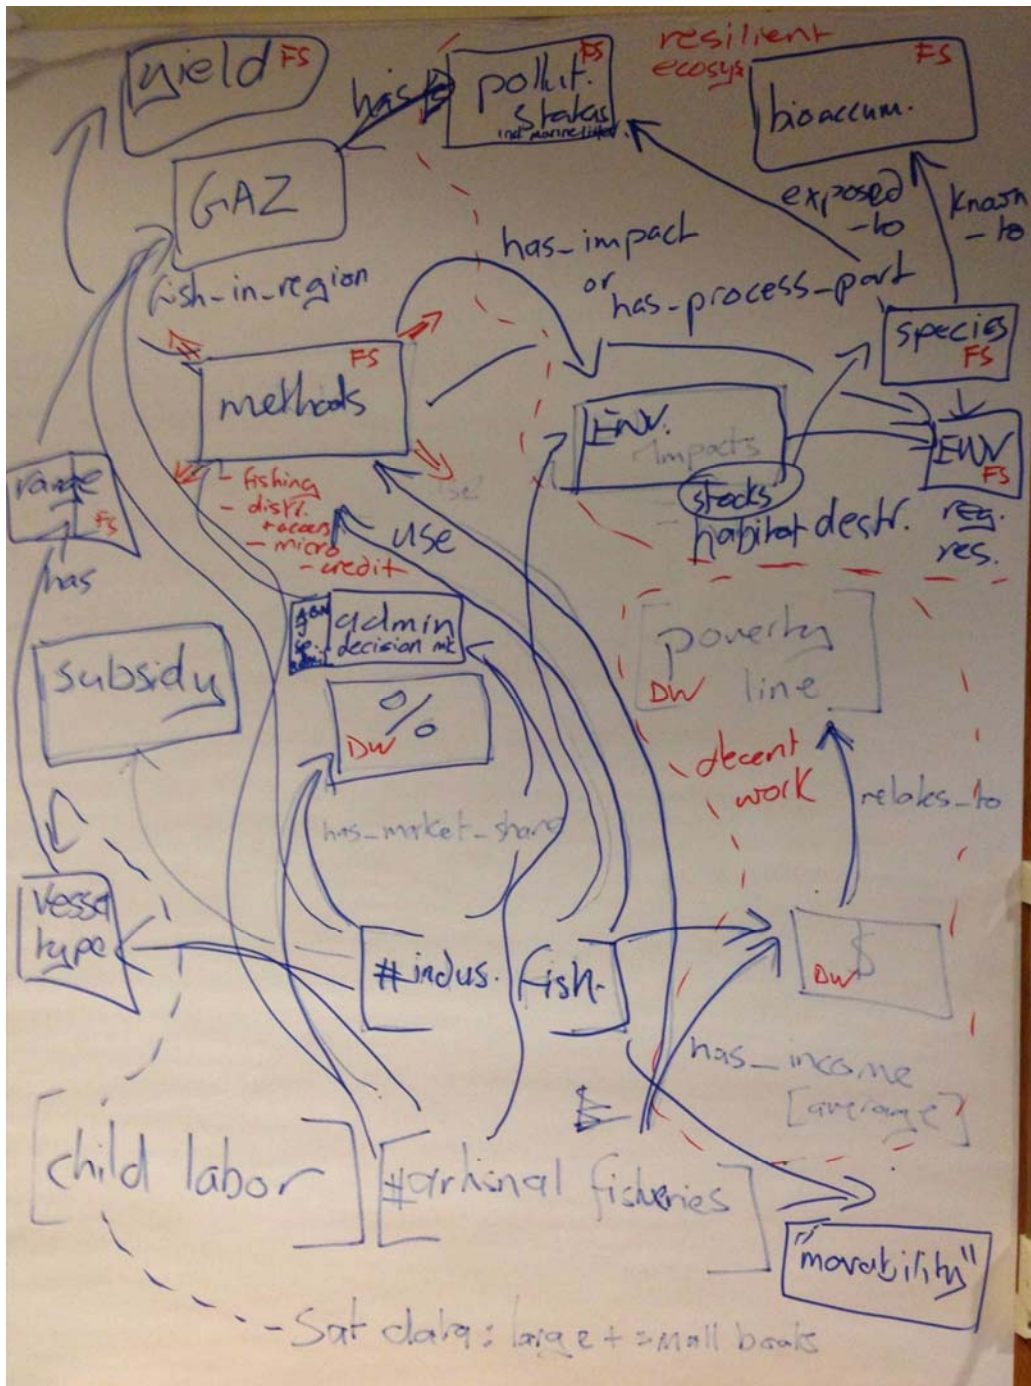 yield FS
has
pollut. FS
status
resilient
ecosys
FS
bioaccum.
GAZ
exposed
-to
known
-to
fish_in_region
has_impact
or
has_process_part
species
FS
FS
methods
ENV.
Impacts
stocks
habitat destr.
ENV
FS
reg.
res.
range
FS
has
- fishing
- distr.
+ access
- micro
- credit
use
admin
decision mk
subsidy
%
DW
poverty
DW line
decent
work
relates_to
has_market_share
vessel
type
#indus. fish.
$
DW
has_income
[average]
[child labor]
[#artisnal fisheries]
"movability"
- Sat data: large + small boats